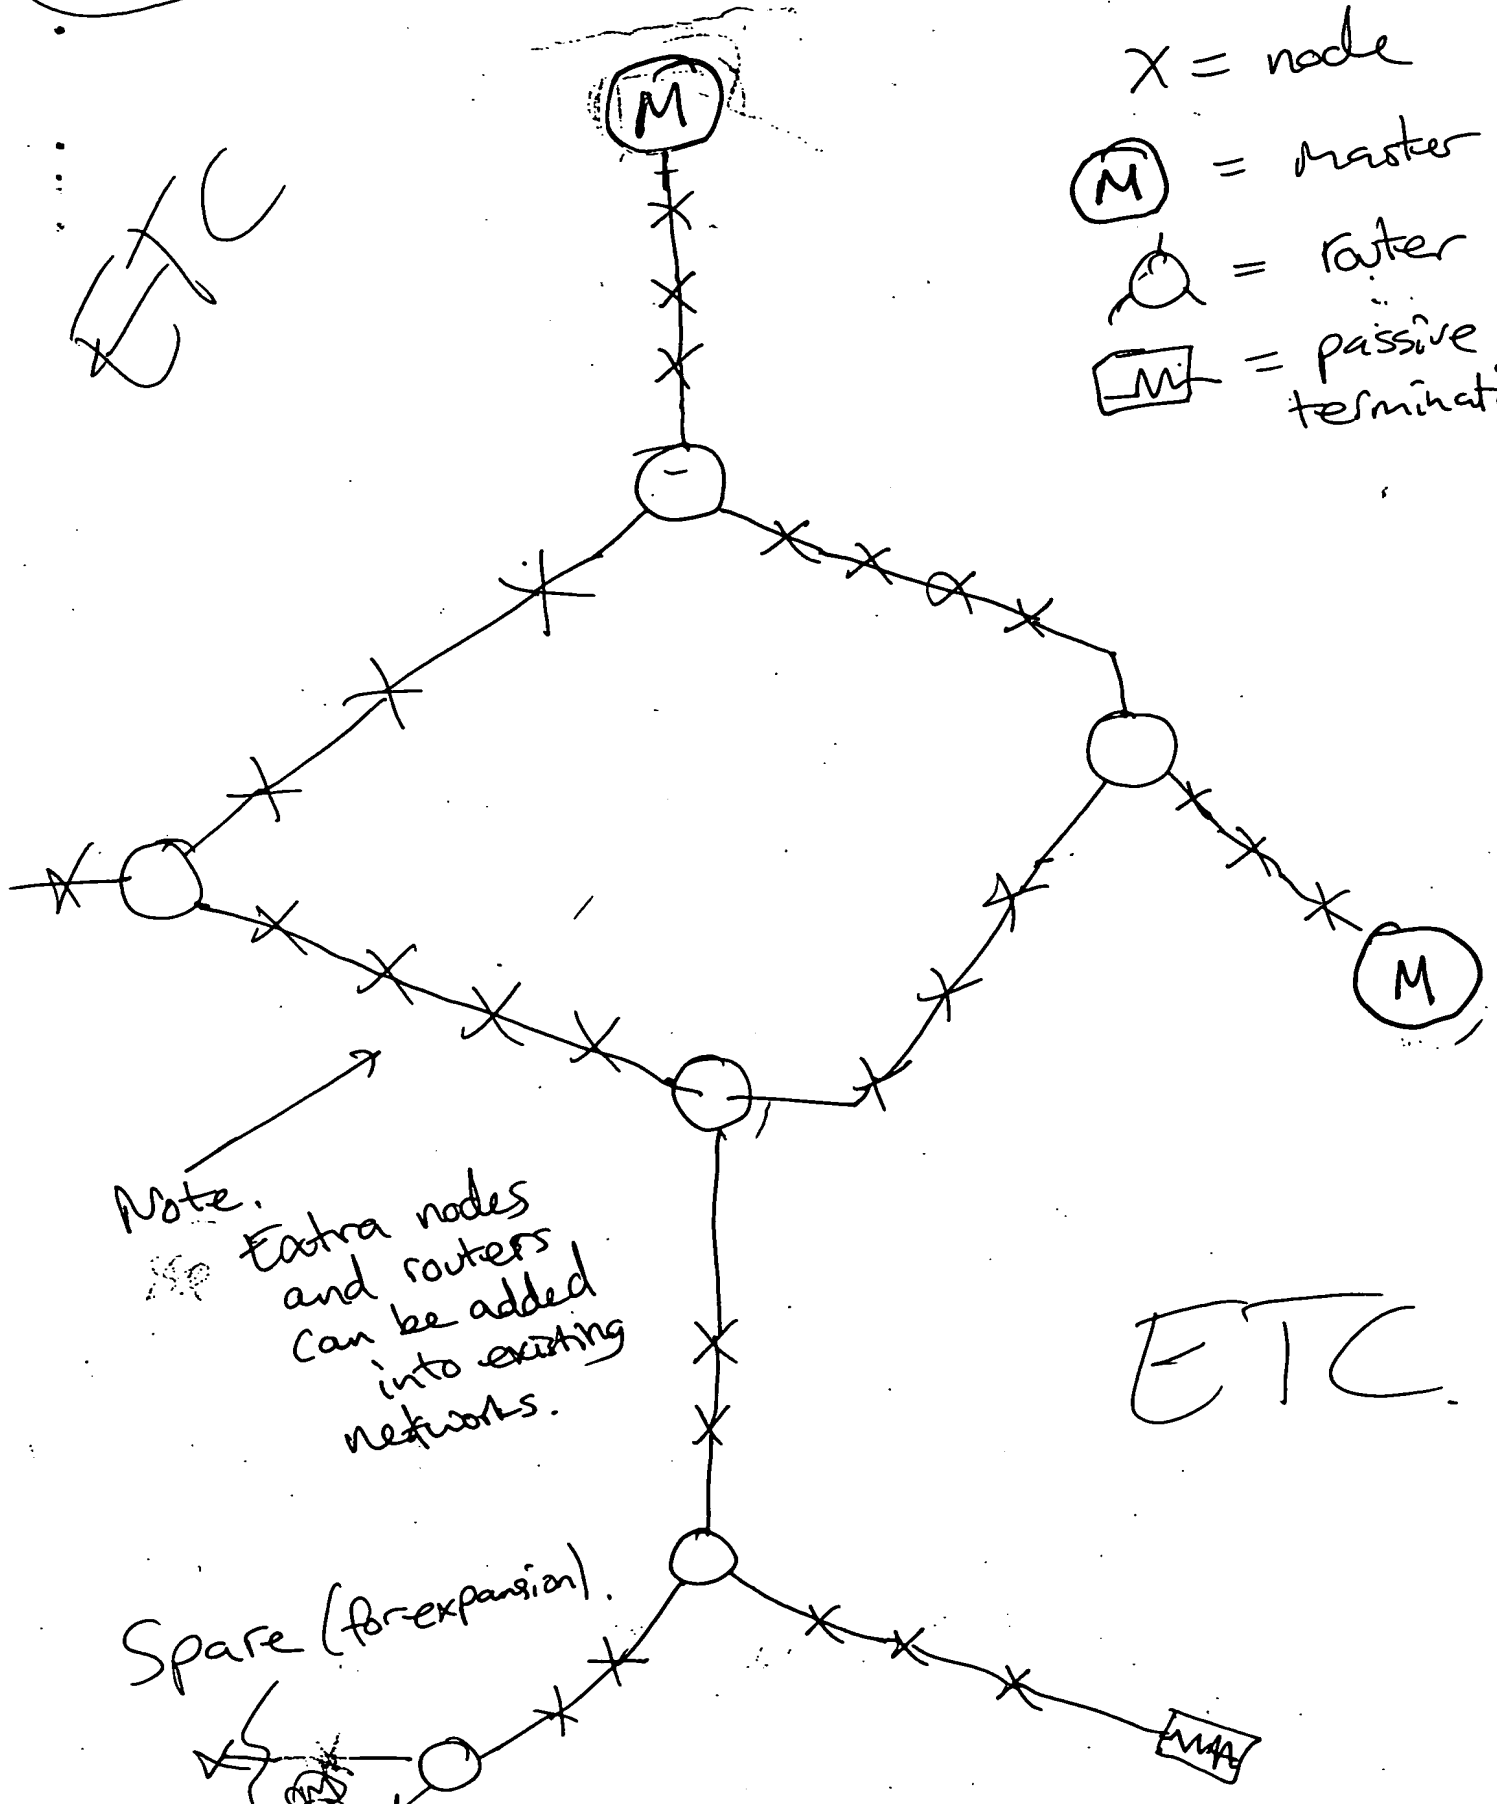 X = node
M = master
= router
= passive
terminati
ETC
M
M
Note.
Extra nodes
and routers
can be added
into existing
networks.
ETC.
Spare (for expansion).